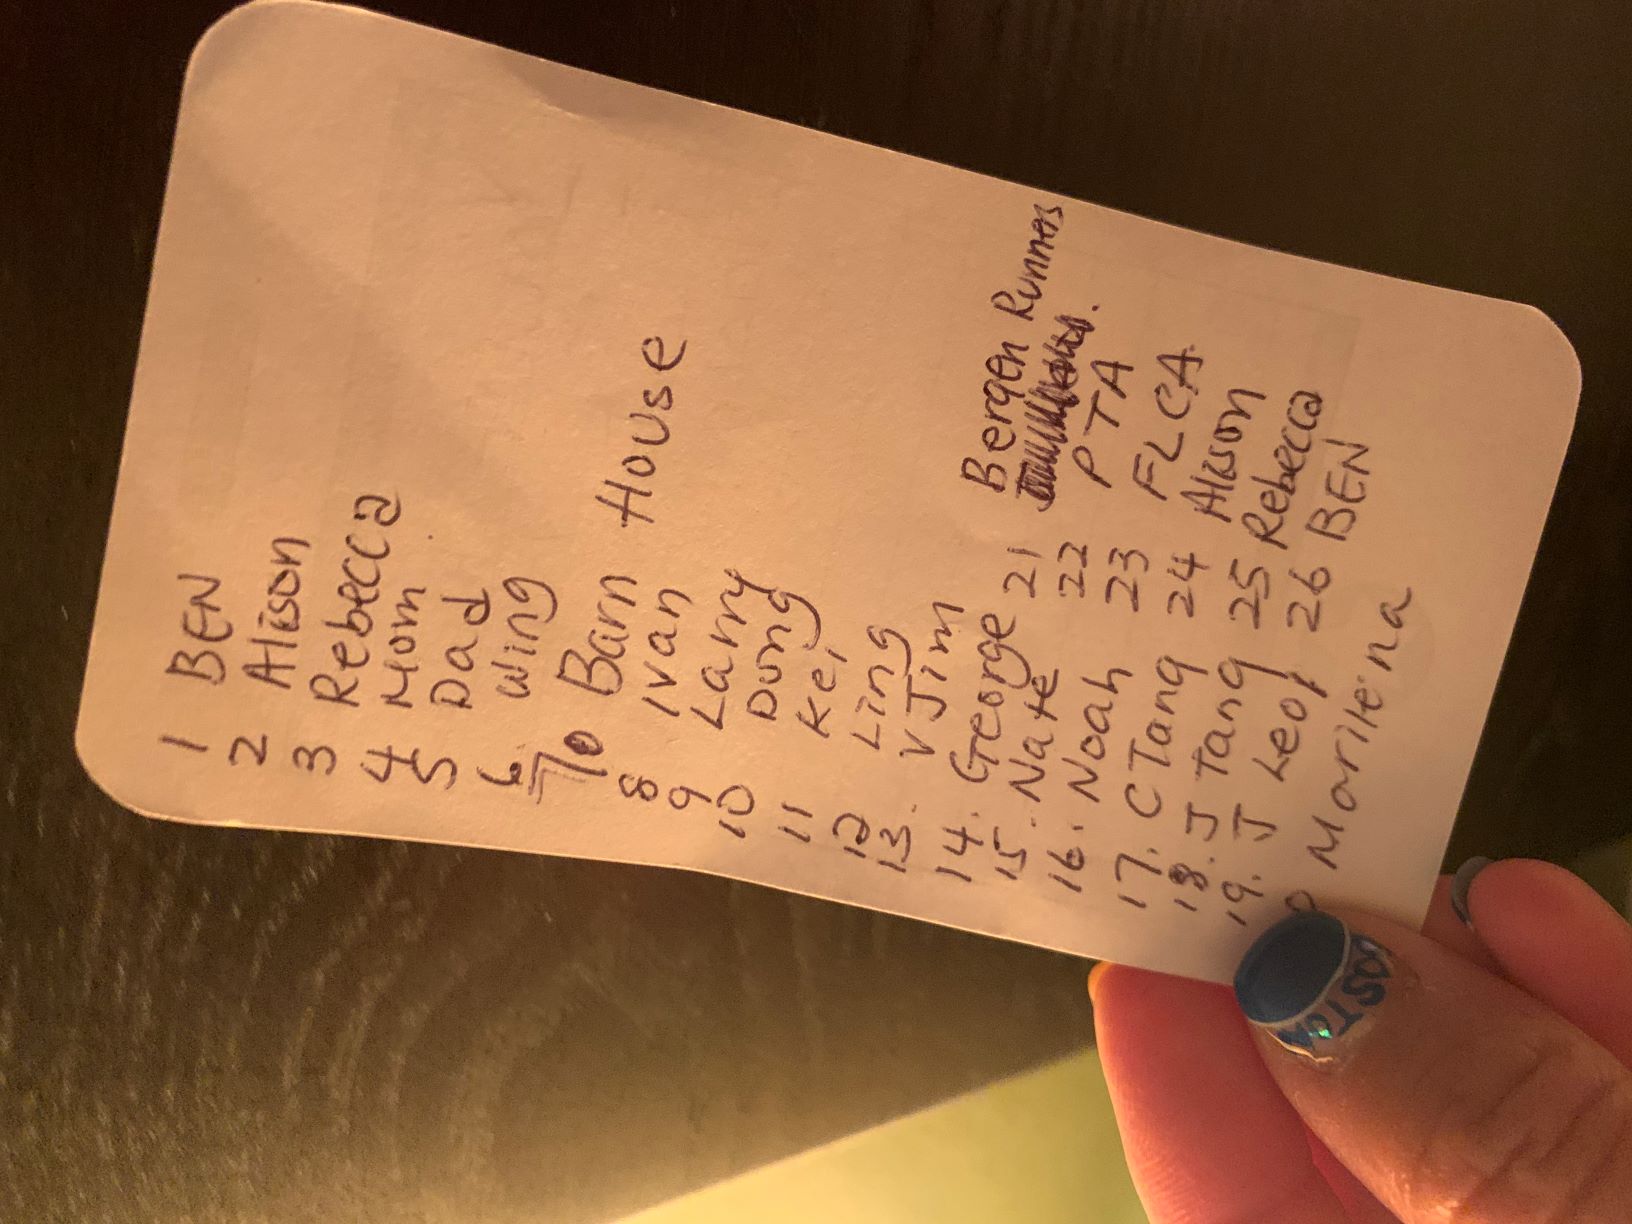 1 BEN
2 Alison
3 Rebecca
4 Mom
5 Dad
6 Wing
7 Barn House
8 Ivan
9 Larry
10 Dung
11 Kei
12 Ling
13. V Jim
14. George
15. Nate
16. Noah
17. C Tang
18. J Tang
19. J Leo
Marilena
21 Bergen Runners
22 PTA
23 FLCA.
24 Alison
25 Rebecca
26 BEN
BOSTON